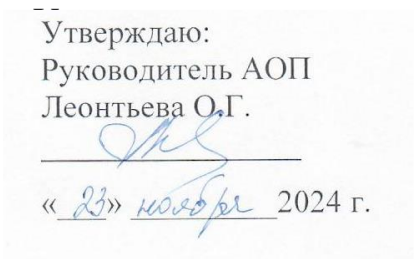 Утверждаю:
Руководитель АОП
Леонтьева О.Г.
«23» ноября 2024 г.